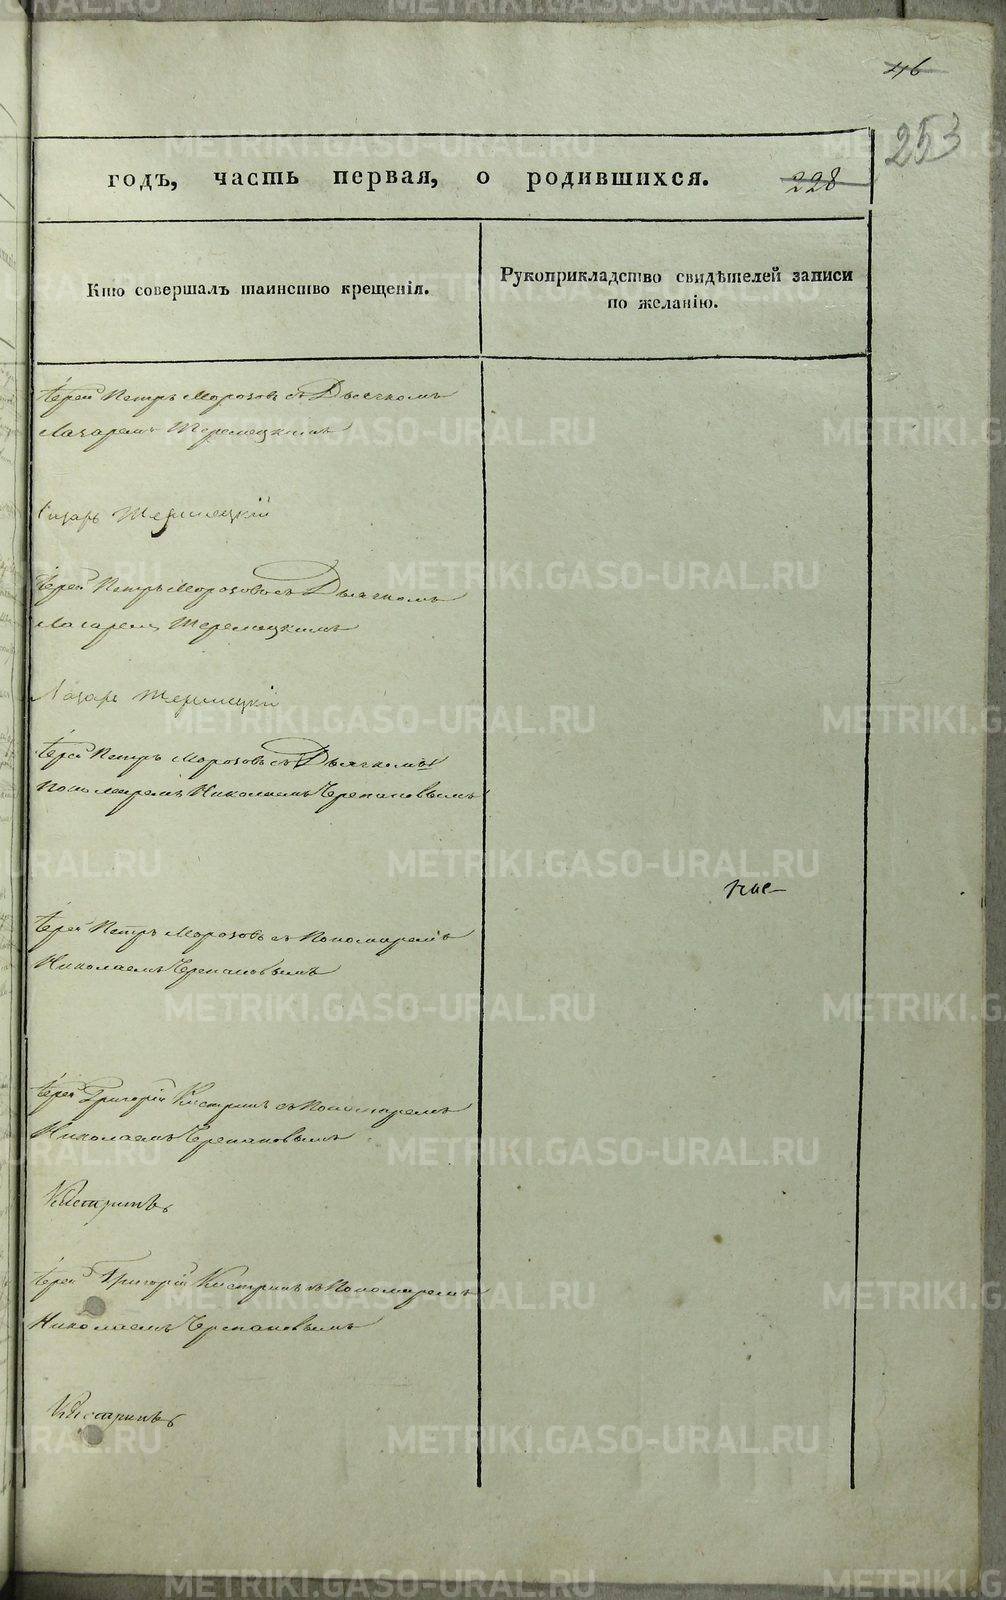 46
253
годъ, часть первая, о родившихся. 228
Кто совершалъ таинство крещенія.
Рукоприкладство свидѣтелей записи
по желанію.
Іерей Петръ Морозовъ съ Дьячкомъ
Лазаремъ Теремецкимъ
Лазарь
Іерей Петръ Морозовъ съ Дьячкомъ
Лазаремъ Теремецкимъ
Лазарь
Іерей Петръ Морозовъ съ Дьячкомъ
Пономаремъ Николаемъ Черепановымъ
Іерей Петръ Морозовъ съ Пономаремъ
Николаемъ Черепановымъ
Іерей Григорій Кистринъ съ Пономаремъ
Николаемъ Черепановымъ
Кистринъ
Іерей Григорій Кистринъ съ Пономаремъ
Николаемъ Черепановымъ
Кистринъ
METRIKI.GASO-URAL.RU